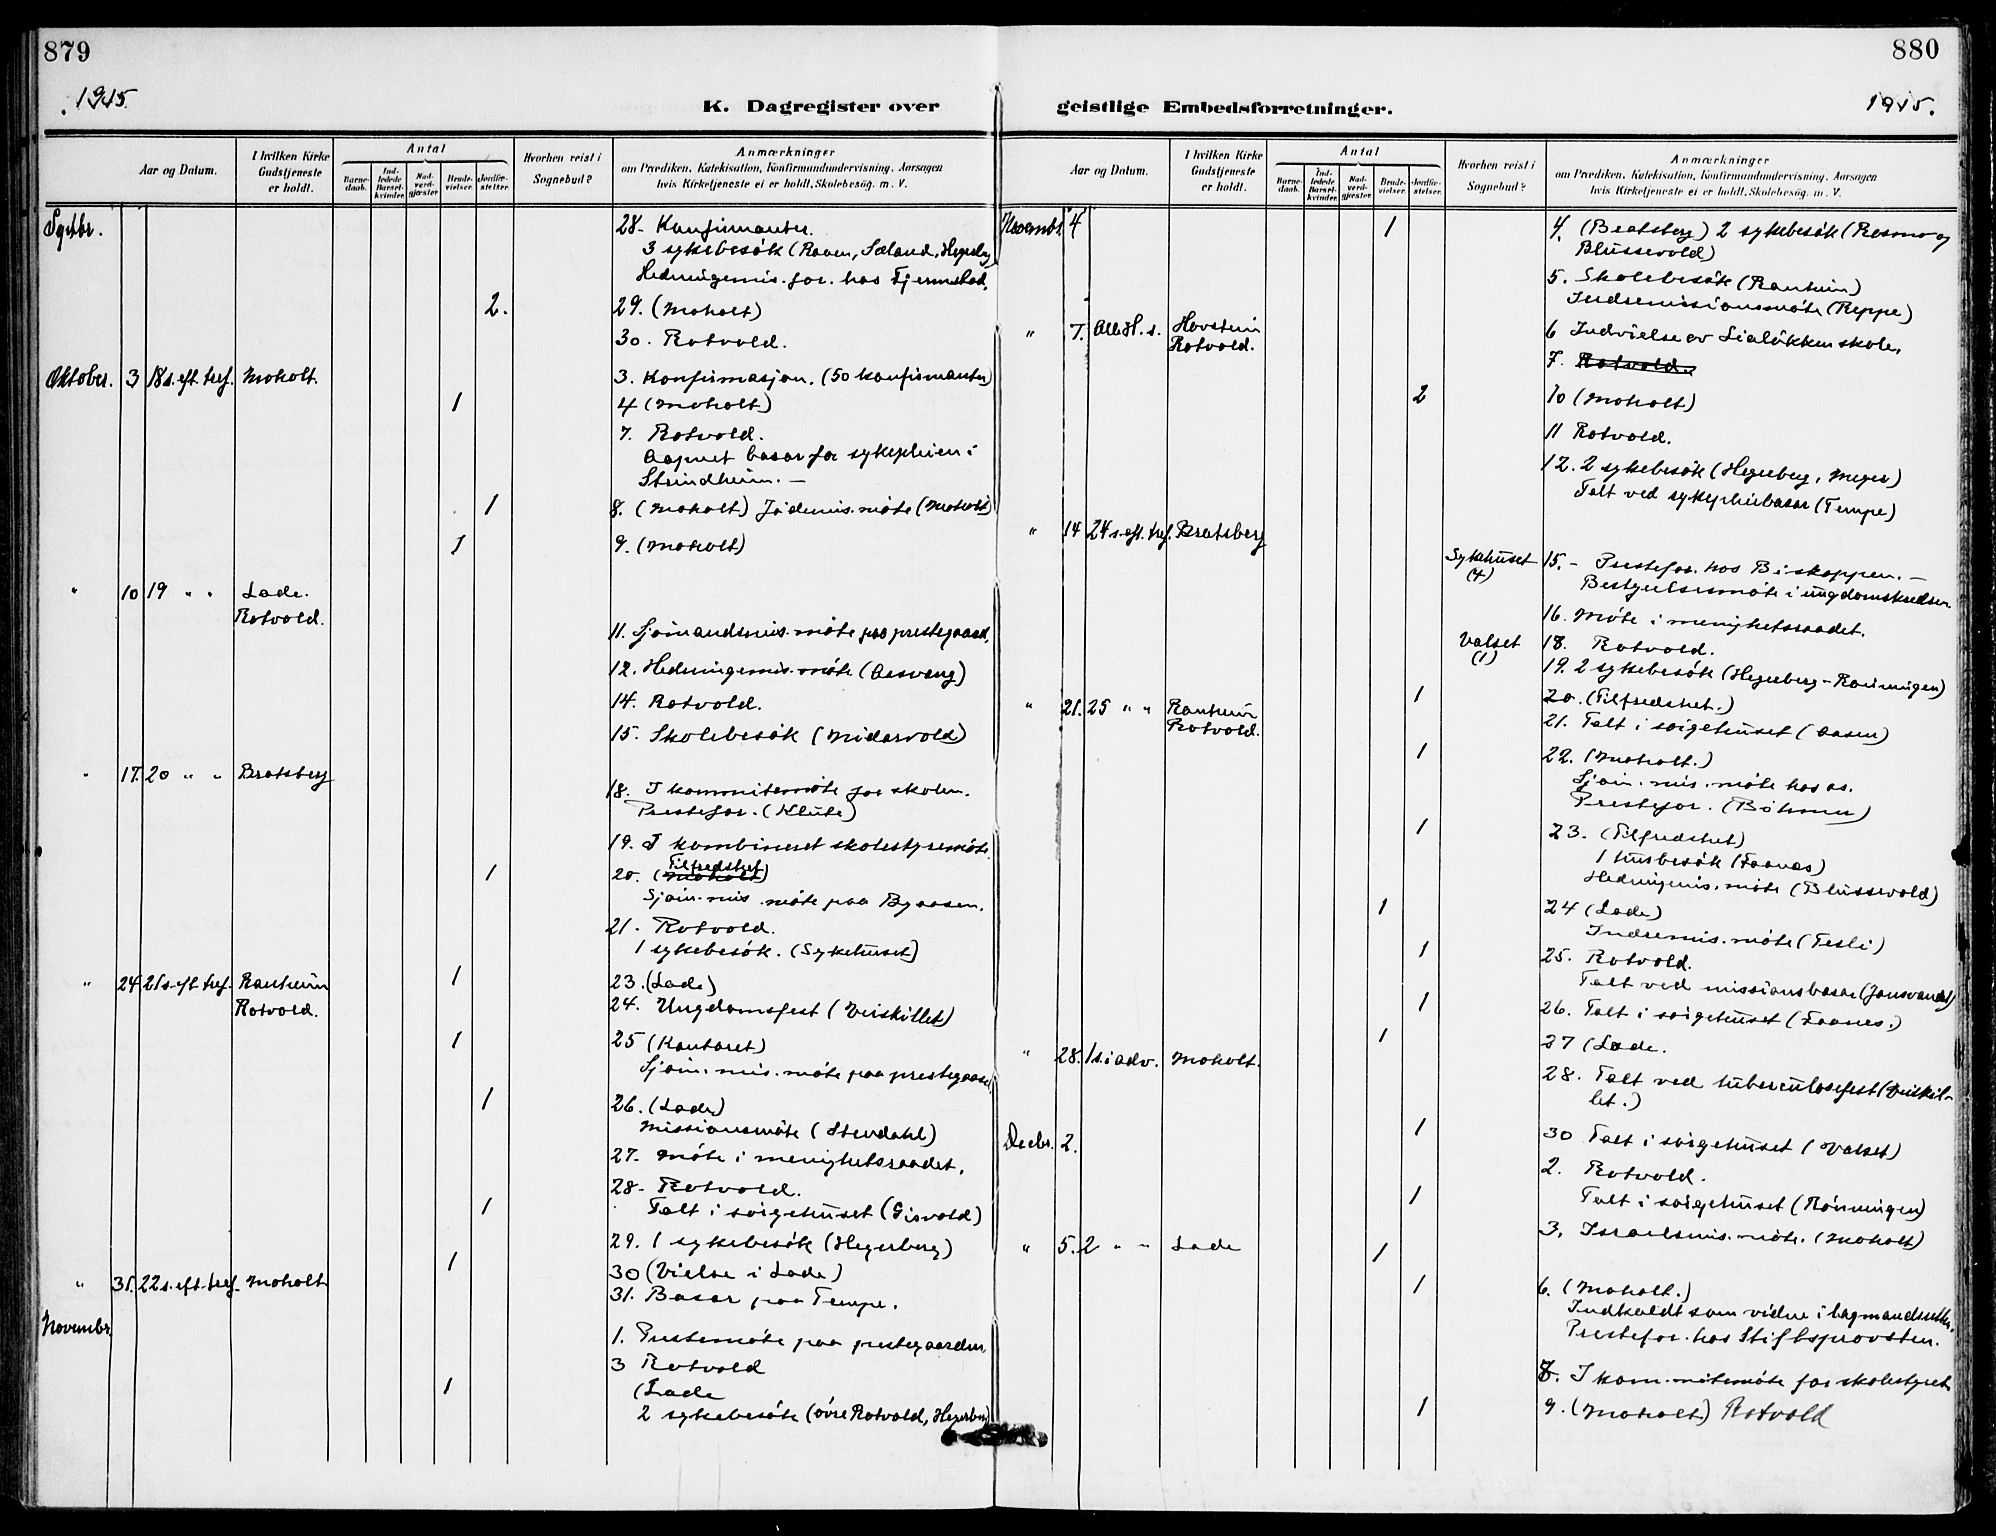 879
1915.
K. Dagregister over
Aar og Datum.
I hvilken Kirke Gudstjeneste er holdt.
Antal
Barnedaab.
Indledede Barselkvinder.
Nadverdgjester
Brudevielser.
Jordfæstelser.
Hvorhen reist i Sognebud?
Anmærkninger
om Prædiken, Katekisation, Konfirmandundervisning, Aarsagen
hvis Kirketjeneste ei er holdt, Skolebesøg. m. V.
Septbr. 28. Konfirmanter.
3 sykebesök (Raaen, Sæland, Hegerberg
Hedningemis. for. hos Fjermstad.
2. 29. (Moholt)
30. Rotvold.
Oktober. 3 18 s. eft. tref. Moholt. 3. Konfirmasjon. (50 konfirmanter)
1 4 (Moholt)
7. Rotvold.
Aapnet basar for sykepleien i
Strindheim. -
1 8. (Moholt) Jödemis. möte (Moholt)
1 9. (Moholt)
" 10 19 " " Lade.
Rotvold.
11. Sjömandsmis. möte paa prestegaard.
12. Hedningemis. möte (Aasvang)
14. Rotvold.
15. Skolebesök (Nidarvold)
" 17. 20 " " Bratsberg
18. I kommitemöte for skolen.
Prestefor. (Klüte)
19. I kombineret skolestyremöte.
Tilfredshet
1 20. (Moholt)
Sjöm. mis. möte paa Byaasen.
21. Rotvold.
1 sykebesök. (Sykehuset)
" 24 21 s. eft. tref. Ranheim 1 23. (Lade)
Rotvold. 24. Ungdomsfest (Veiskillet)
1 25 (Kontoret)
Sjöm. mis. möte paa prestegaard
1 26. (Lade)
Missionsmöte (Stendahl)
27. Möte i menighetsraadet.
28. Rotvold.
1 Talt i sörgehuset (Gisvold)
29. 1 sykebesök (Hegerberg)
1 30 (Vielse i Lade)
" 31. 22 s. eft. tref. Moholt 31. Basar paa Tempe.
Novembr.
1. Prestemöte paa prestegaarden.
3 Rotvold
1 (Lade
2 sykebesök (övre Rotvold, Hegerberg)
880
1915.
geistlige Embedsforretninger.
Aar og Datum.
I hvilken Kirke Gudstjeneste er holdt.
Antal
Barnedaab.
Indledede Barselkvinder.
Nadverdgjester
Brudevielser.
Jordfæstelser.
Hvorhen reist i Sognebud?
Anmærkninger
om Prædiken, Katekisation, Konfirmandundervisning, Aarsagen
hvis Kirketjeneste ei er holdt, Skolebesøg. m. V.
Novembr. 4 1 4. (Bratsberg) 2 sykebesök (Rosmo og
Blussevold)
5. Skolebesök (Ranheim)
Indremissionsmöte (Reppe)
" 7. Alleh. s. Hovstein
Rotvold.
6 Indvielse av Lialökken skole.
7. Rotvold.
2 10 (Moholt)
11 Rotvold.
12. 2 sykebesök (Hegerberg, Meyer)
Talt ved sykepleiebasar (Tempe)
" 14 24 s. eft. tref. Bratsberg
Sykehuset
(4)
15. - Prestefor. hos Biskoppen. -
Bestyrelsesmöte i ungdomskredsen.
16. Möte i menighetsraadet.
Valset
(1)
18. Rotvold.
19. 2 sykebesök (Hegerberg - Rönningen)
1 20. (Tilfredshet.)
" 21. 25 " " Ranheim
Rotvold.
21. Talt i sörgehuset (Aasen)
1 22. (Moholt.)
Sjöm. mis. möte hos os.
Prestefor. (Böhmer)
1 23. (Tilfredshet)
1 husbesök (Faanes)
Hedningemis. möte (Blussevold)
1 24 (Lade)
Indremis. möte (Tesli)
1 25. Rotvold.
Talt ved missionsbasar (Jonsvandet)
1 26. Talt i sörgehuset (Faanes.)
1 27 (Lade.
" 28. 1 s. i adv. Moholt.
28. Talt ved tuberculosefest (Veiskil-
let.)
1 30 Talt i sörgehuset (Valset)
Decbr. 2. 2. Rotvold.
1 Talt i sörgehuset (Rönningen)
3. Israelsmis. möte. (Moholt)
" 5. 2 " " Lade 1
1 6. (Moholt.)
Indkaldt som vidne i lagmandsretten.
Prestefor. hos Stiftsprovsten.
8. I kommitemöte for skolestyret
1 9. (Moholt.) Rotvold